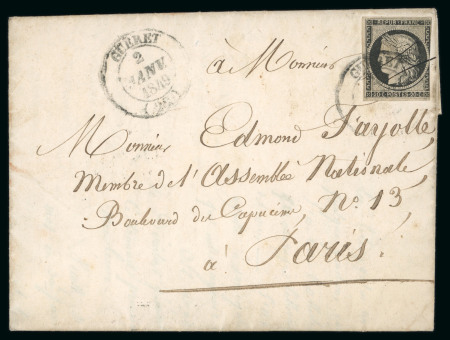 GUERET
2
JANV.
1849
(22)
REPUB. FRANC.
20 c POSTES 20 c
à Monsieur
Monsieur Edmond Fayolle
Membre de l'Assemblée Nationale
Boulevard des Capucines, No 13
à Paris.